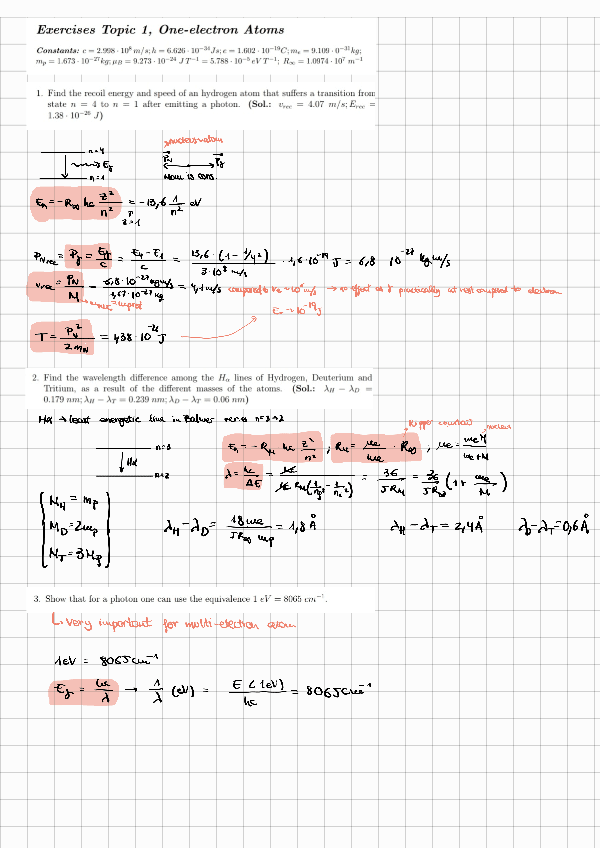 Exercises Topic 1, One-electron Atoms
Constants: c = 2.998 · 10⁸ m/s; h = 6.626 · 10⁻³⁴ Js; e = 1.602 · 10⁻¹⁹C; mₑ = 9.109 · 0⁻³¹kg;
mₚ = 1.673 · 10⁻²⁷kg; μB = 9.273 · 10⁻²⁴ J T⁻¹ = 5.788 · 10⁻⁵ eV T⁻¹; R∞ = 1.0974 · 10⁷ m⁻¹
1. Find the recoil energy and speed of an hydrogen atom that suffers a transition from
state n = 4 to n = 1 after emitting a photon. (Sol.: vrec = 4.07 m/s; Erec =
1.38 · 10⁻²⁶ J)
nucleus=atom
n=4
Eγ
PN Pγ
n=1
Mom is cons.
En = -R∞ hc Z²/n² = -13,6 1/n² eV
Z=1
PNrec = Pγ = Eγ/c = (E4-E1)/c = 13,6 · (1 - 1/4²) / 3·10⁸ m/s · 1,6·10⁻¹⁹ J = 6,8 10⁻²⁷ kg m/s
vrec = PN/M = 6,8·10⁻²⁷ kg m/s / 1,67·10⁻²⁷ kg = 4,1 m/s compared to → no effect as practically at rest compared to electron
E ~ 10⁻¹⁹ J
T = PN²/2mN = 1,38 · 10⁻²⁶ J
2. Find the wavelength difference among the Hα lines of Hydrogen, Deuterium and
Tritium, as a result of the different masses of the atoms. (Sol.: λH − λD =
0.179 nm; λH − λT = 0.239 nm; λD − λT = 0.06 nm)
Hα → least energetic line in Balmer series n=3→2
constant nucleus
n=3
Hα
n=2
En = -RM hc Z²/n² ; RM = μe/me · R∞ ; μe = me M/(me+M)
λ = hc/ΔE = hc / hc RM(1/nf² - 1/ni²) = 36/5RM = 36/5R∞ (1 + me/M)
MH = mp
MD = 2mp
MT = 3Mp
λH - λD = 18me/5R∞ mp = 1,8 Å
λH - λT = 2,4 Å λD-λT = 0,6 Å
3. Show that for a photon one can use the equivalence 1 eV = 8065 cm⁻¹.
↳ very important for multi-electron atom
1eV = 8065 cm⁻¹
Eγ = hc/λ → 1/λ (eV) = E (1eV)/hc = 8065 cm⁻¹